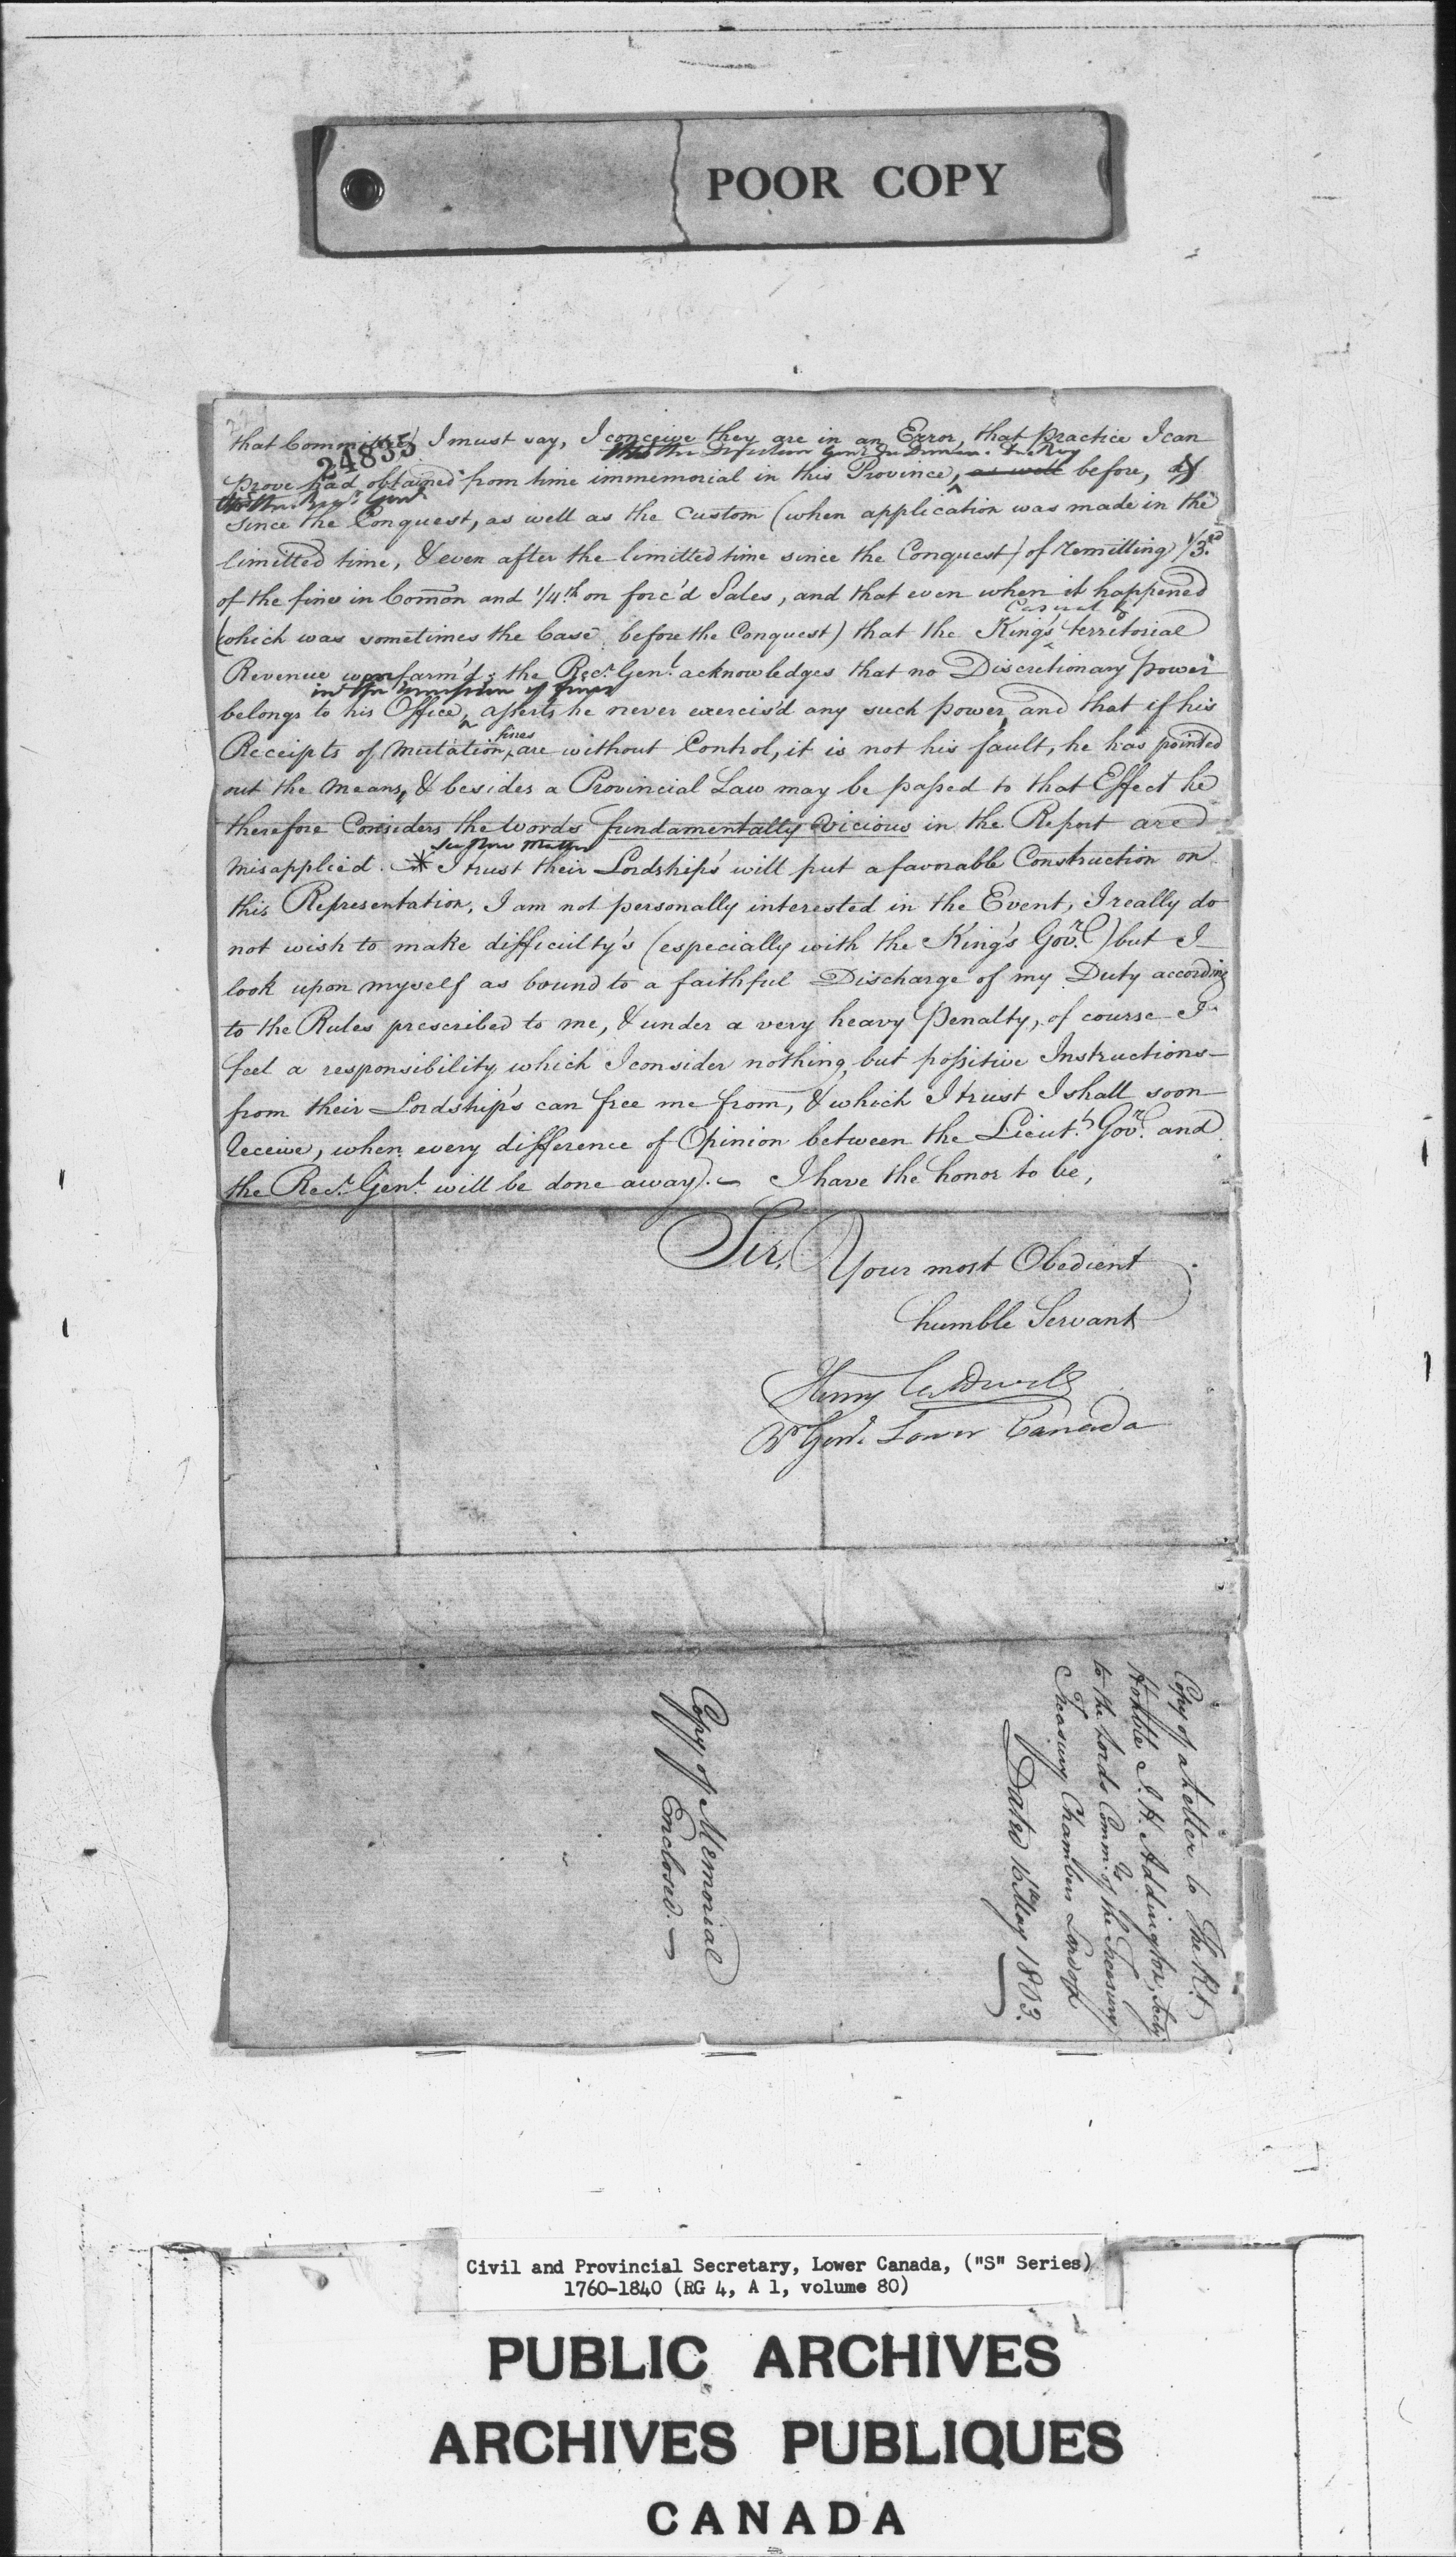 POOR COPY
that Committee, I must say, I conceive they are in an Error, that practice I can
24835
prove had obtained from time immemorial in this Province, as well before, as
Since the Conquest, as well as the Custom (when application was made in the
limitted time, & even after the limitted time since the Conquest) of remitting 1/3.rd
of the fine in Comōn and 1/4.th on forc'd Sales, and that even when it happened
casual &
(which was sometimes the Case before the Conquest) that the King's territorial
Revenue were farm'd; the Rec.r Gen.l acknowledges that no Discretionary power
in the remission of fines
belongs to his Office, asserts he never exercis'd any such power, and that if his
fines
Receipts of Mutation are without Control, it is not his fault, he has pointed
out the Means, & besides a Provincial Law may be passed to that Effect he
therefore Considers the words fundamentally vicious in the Report are
misapplied. * I trust their Lordship's will put a favorable Construction on
this Representation, I am not personally interested in the Event, I really do
not wish to make difficulty's (especially with the King's Gov.r) but I
look upon myself as bound to a faithful Discharge of my Duty according
to the Rules prescribed to me, & under a very heavy Penalty, of course I
feel a responsibility which I consider nothing but possitive Instructions
from their Lordship's can free me from, & which I trust I shall soon
receive, when every difference of Opinion between the Lieut.t Gov.r and
the Rec.r Gen.l will be done away. I have the honor to be,
Sir,
Your most Obedient
humble Servant
Henry Caldwell
Rr Genl. Lower Canada
Copy of a Letter to The Rt.
Honble J. H. Addington, Secty
to the Lords Comm.rs of the Treasury
Treasury Chambers London
Dated 16th May 1803.
Copy of Memorial
Enclosed.
Civil and Provincial Secretary, Lower Canada, ("S" Series)
1760-1840 (RG 4, A 1, volume 80)
PUBLIC ARCHIVES
ARCHIVES PUBLIQUES
CANADA